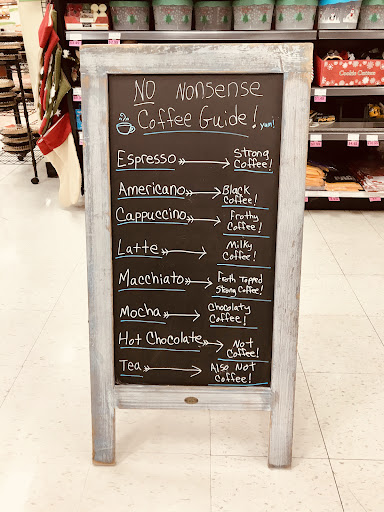 NO Nonsense
Coffee Guide! yum!
Espresso → Strong
Coffee!
Americano → Black
Coffee!
Cappuccino → Frothy
Coffee!
Latte → Milky
Coffee!
Macchiato → Froth Topped
Strong Coffee!
Mocha → Chocolaty
Coffee!
Hot Chocolate → Not
Coffee!
Tea → Also Not
Coffee!